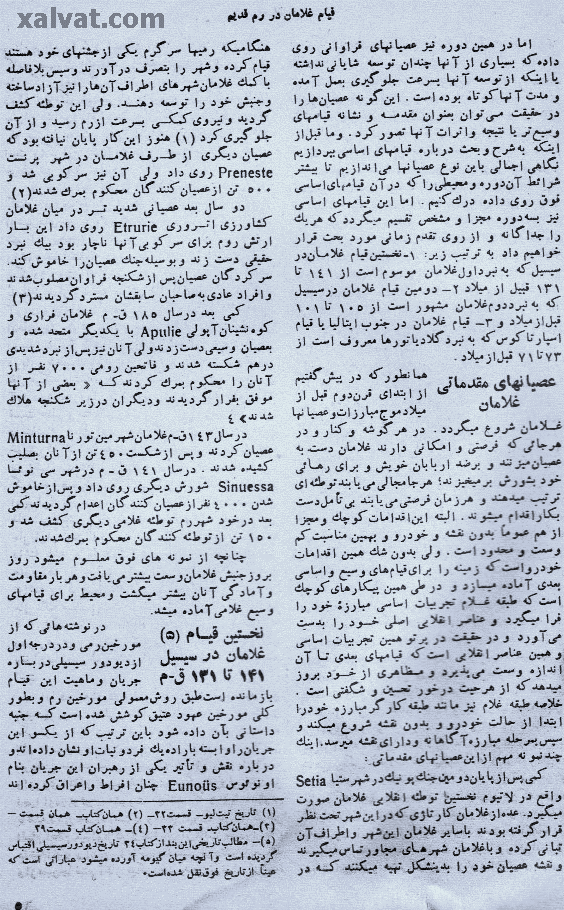 xalvat.com
قیام غلامان در رم قدیم
اما در همین دوره نیز عصیانهای فراوانی روی
داده که بسیاری از آنها چندان توسعه شایانی نداشته
یا اینکه از توسعه آنها بسرعت جلوگیری بعمل آمده
و مدت آنها کوتاه بوده است. این گونه عصیان‌ها را
در حقیقت می‌توان بعنوان مقدمه و نشانه قیامهای
وسیع‌تر یا نتیجه و اثرات آنها تصور کرد. وما قبل از
اینکه بشرح و بحث در باره قیامهای اساسی بپردازیم
نگاهی اجمالی باین نوع عصیانها می‌اندازیم تا بیشتر
شرائط آن‌دوره و محیطی‌را که در آن قیامهای‌اساسی
فوق روی داده درك کنیم. اما این قیامهای اساسی
نیز بسه‌دوره مجزا و مشخص تقسیم میگردد که هریك
را جداگانه و از روی تقدم زمانی مورد بحث قرار
خواهیم داد به ترتیب زیر: ۱- نخستین قیام غلامان‌در
سیسیل که به نبرد اول غلامان موسوم است از ۱۴۱ تا
۱۳۱ قبیل از میلاد ۲- دومین قیام غلامان درسیسیل
که به نبرددوم غلامان مشهور است از ۱۰۵ تا ۱۰۱
قبل‌از میلاد و ۳- قیام غلامان در جنوب ایتالیا یا قیام
اسپارتاکوس که به نبرد گلادیاتورها معروف است از
۷۳ تا ۷۱ قبل‌از میلاد.
عصیانهای مقدماتی
غلامان
همانطور که در پیش گفتیم
از ابتدای قرن‌دوم قبل از
میلاد موج مبارزات وعصیانها
غلامان شروع میگردد. در هر گوشه و کنار و در
هرجائی که فرصتی و امکانی دارند غلامان دست به
عصیان میزنند و برضد اربابان خویش و برای رهائی
خود بشورش برمیخیزند؛ هرجا مجالی می‌یابند توطئه‌ای
ترتیب میدهند و هر زمان فرصتی می‌یابند بی‌تأمل‌دست
بکار اقدام میشوند. البته این‌اقدامات کوچك و مجزا
از هم عموماً بدون نقشه و خودرو و بهمین مناسبت کم
وسعت و محدود است. ولی بدون شك همین اقدامات
خودرو است که زمینه را برای قیام‌های وسیع و اساسی
بعدی آماده میسازد و در طی همین پیکارهای کوچك
است که طبقه غلام تجربیات اساسی مبارزهٔ خود را
فرا میگیرد و عناصر انقلابی اصلی خود را بدست
می‌آورد و در حقیقت در پرتو همین تجربیات اساسی
و همین عناصر انقلابی است که قیامهای بعدی تا آن
اندازه وسعت می‌پذیرد و مظاهری از خود بروز
میدهد که از هرحیث درخور تحسین و شگفتی است.
خلاصه طبقه غلام نیز مانند طبقه کارگر مبارزه خودرا
ابتدا از حالت خودرو و بدون نقشه شروع میکند و
سپس بمرحله مبارزه آگاهانه و دارای نقشه میرسد. اینك
چند نمونه مهم از این عصیانهای مقدماتی:
کمی پس از پایان دومین جنك پونیك در شهر ستیا Setia
واقع در لاتیوم نخستین توطئه انقلابی غلامان صورت
میگیرد. عده‌ای از غلامان کارتاژی که در این شهر تحت نظر
قرار گرفته بودند باسایر غلامان این شهر و اطراف آن
تبانی کرده و با غلامان شهرهای مجاور تماس میگیرند
و نقشه عصیان خود را بدینشکل تهیه میکنند که در
هنگامیکه رمیها سرگرم یکی از جشنهای خود هستند
قیام کرده و شهر را بتصرف درآورند وسپس بلافاصله
با کمك غلامان شهرهای اطراف آن‌ها را نیز آزاد ساخته
و جنبش خود را توسعه دهند. ولی این توطئه کشف
گردید و نیروی کمکی بسرعت از رم رسید و از آن
جلوگیری کرد (۱) هنوز این کار پایان نیافته بود که
عصیان دیگری از طرف غلامان در شهر پرنست
Preneste روی داد ولی آن نیز سرکوبی شد و
۵۰۰ تن ازعصیان کنندگان محکوم بمرك شدند(۲)
دو سال بعد عصیانی شدید تر در میان غلامان
کشاورزی اتروری Etrurie روی داد این بار
ارتش روم برای سرکوبی آنها ناچار بود بیك نبرد
حقیقی دست زند و بوسیله جنك عصیان‌را خاموش کند.
سرکردگان عصیان پس از شکنجه فراوان مصلوب شدند
و افراد عادی به صاحبان سابقشان مسترد گردیدند(۳)
کمی بعد درسال ۱۸۵ ق-م غلامان فراری و
کوه نشینان آپولی Apulie با یکدیگر متحد شده و
بعصیان وسیعی دست زدند ولی آنان نیز پس از نبرد شدیدی
درهم شکسته شدند و فاتحین رومی ۷۰۰۰ نفر از
آنان را محکوم بمرك کردند که « بعضی از آنها
موفق بفرار گردیدند و دیگران درزیر شکنجه هلاك
شدند» ۴
در سال ۱۴۳ ق-م غلامان شهر مین تورنا Minturna
عصیان کردند و پس از شکست ۴۵۰ تن از آنان بصلیب
کشیده شدند. در سال ۱۴۱ ق - م در شهر سی نوئسا
Sinuessa شورش دیگری روی داد و پس از خاموش
شدن ۴۰۰۰ نفر از عصیان کنندگان اعدام گردیدند کمی
بعد در خود شهر رم توطئه غلامی دیگری کشف شد و
۱۵۰ تن از توطئه کنندگان محکوم بمرك شدند.
چنانچه از نمونه های فوق معلوم میشود روز
بروز جنبش غلامان وسعت بیشتر می‌یافت و هر بار مقاومت
و آمادگی آنان بیشتر میگشت و محیط برای قیامهای
وسیع غلامی آماده میشد.
نخستین قیام (۵)
غلامان در سیسیل
۱۴۱ تا ۱۳۱ ق-م
در نوشته‌هائی که از
مورخین رمی و در درجه اول
از دیودور سیسیلی در باره
جریان و ماهیت این قیام
بازمانده است طبق روش معمولی مورخین رم و بطور
کلی مورخین عهود عتیق کوشش شده است که جنبه
داستانی بآن داده شود باین ترتیب که از یکسو این
جریان را وابسته باراده یك فرد و نیات او نشان داده‌اند و
در باره نقش و تأثیر یکی از رهبران این جریان بنام
او نوئوس Eunoüs چنان افراط و اغراق کرده اند
(۱) تاریخ تیت‌لیو- قسمت ۳۲- (۲) همان کتاب همان قسمت -
(۳)- همان کتاب قسمت ۳۳ - (۴)- همان کتاب قسمت ۳۹
(۵)- مطالب تاریخی این بند از کتاب ۳۴ تاریخ دیودور سیسیلی اقتباس
گردیده است و آنچه میان گیومه آورده میشود عباراتی است که
عیناً از تاریخ فوق نقل شده است.